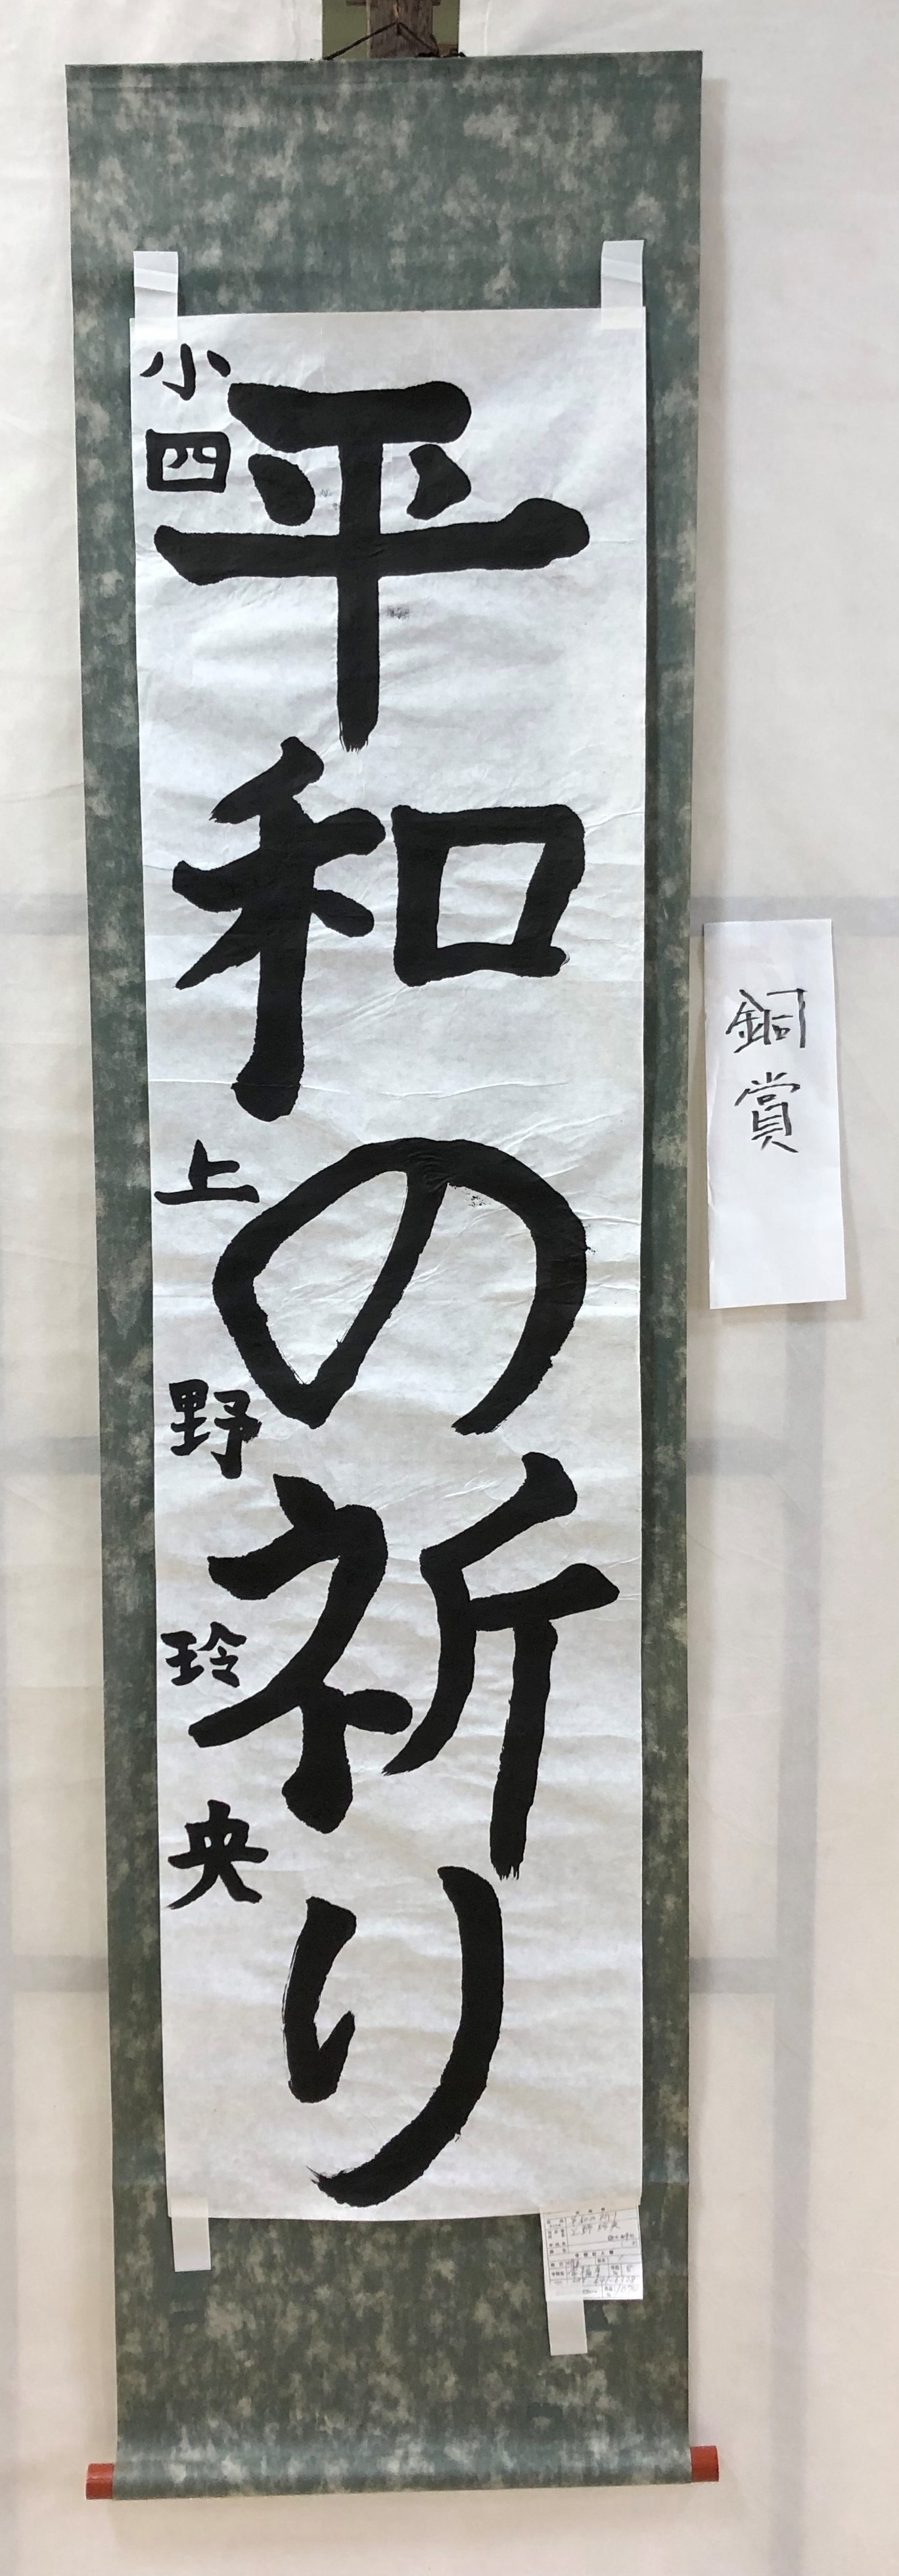 平和の祈り
小四 上野玲央
銅賞